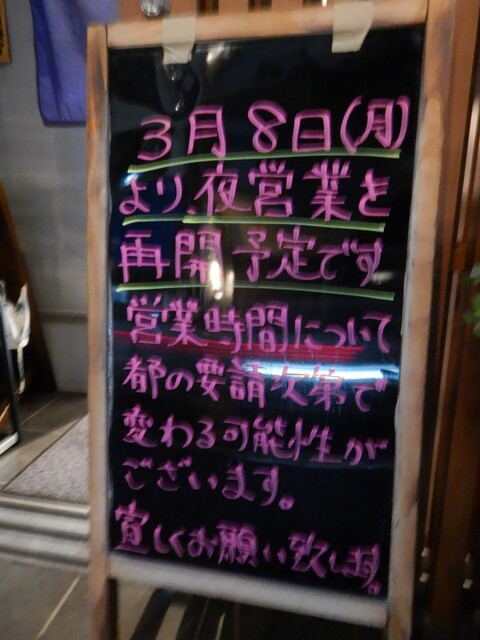 3月8日(月)
より、夜営業を
再開予定です
営業時間について
都の要請次第で
変わる可能性が
ございます。
宜しくお願い致します。